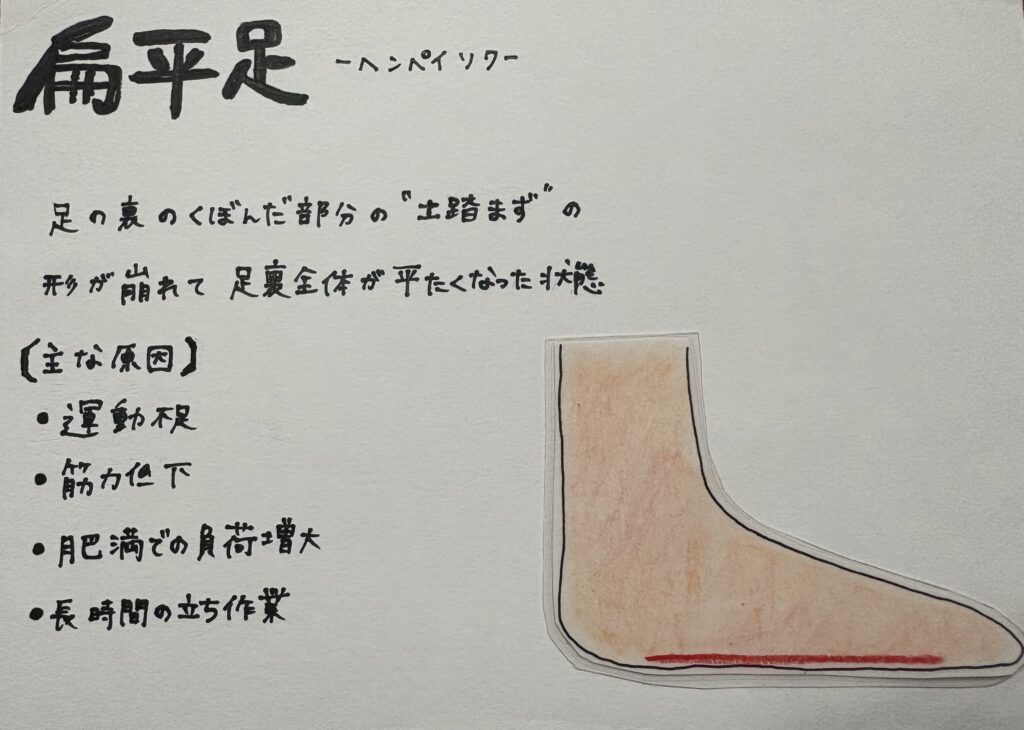 扁平足 ーヘンペイソクー
足の裏のくぼんだ部分の"土踏まず"の
形が崩れて 足裏全体が平たくなった状態
【主な原因】
・運動不足
・筋力低下
・肥満での負荷増大
・長時間の立ち作業